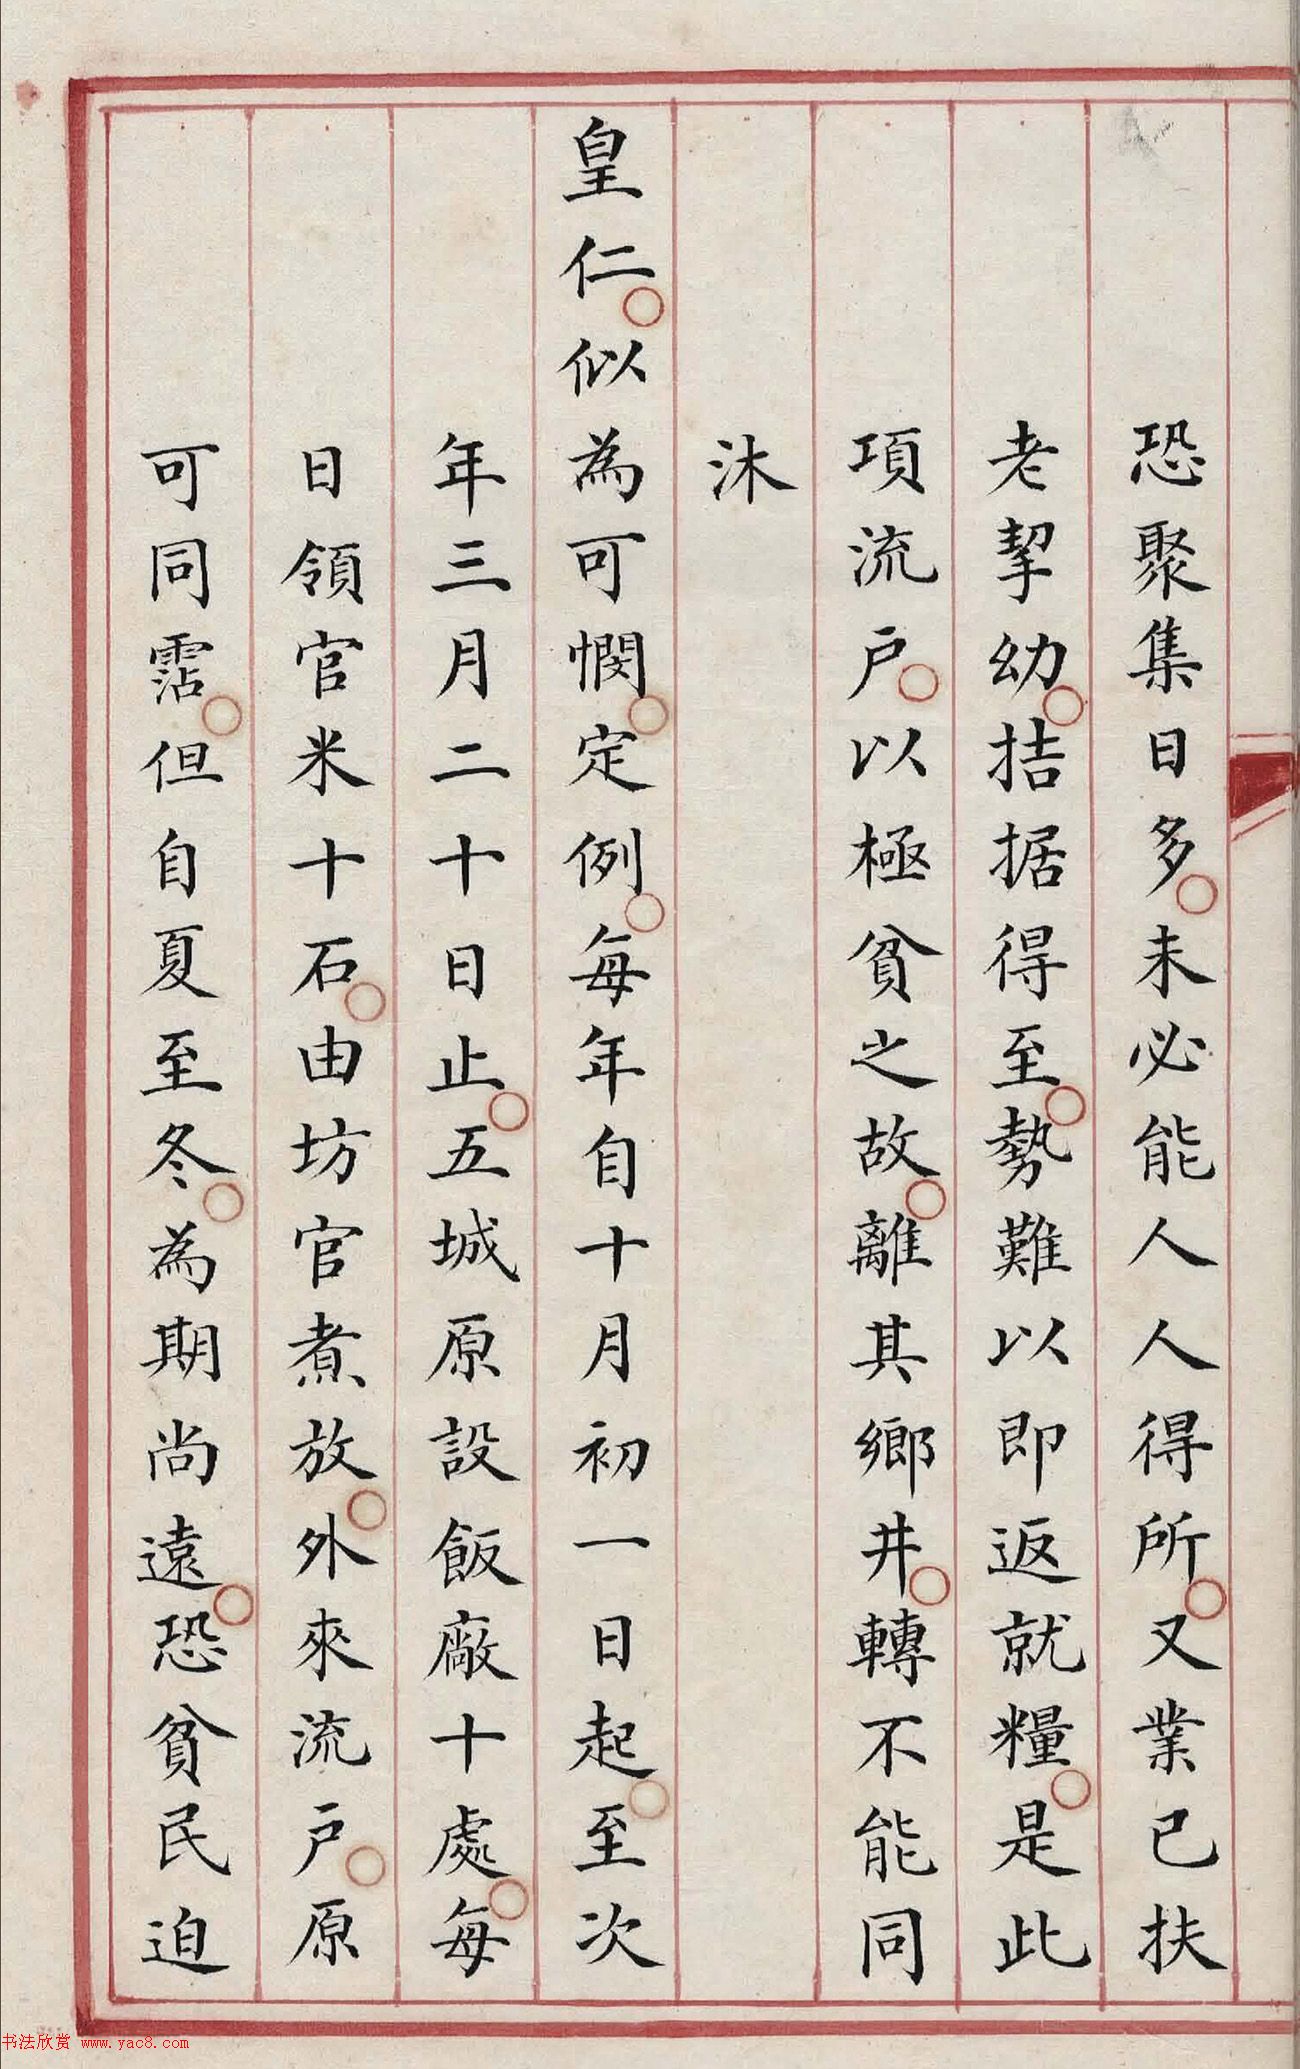 恐聚集日多○未必能人人得所○又業已扶
老挈幼○拮据得至○勢難以即返就糧○是此
項流戶○以極貧之故○離其鄉井○轉不能同
沐
皇仁○似為可憫○定例○每年自十月初一日起○至次
年三月二十日止○五城原設飯廠十處○每
日領官米十石○由坊官煮放○外來流戶○原
可同霑○但自夏至冬○為期尚遠○恐貧民迫
书法欣赏 www.yac8.com